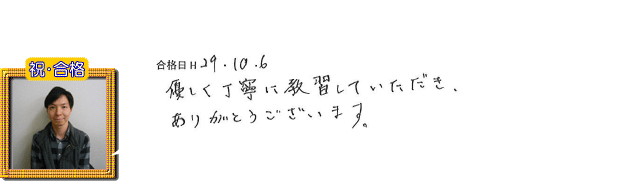 祝・合格
合格日 H 29.10.6
優しく丁寧に教習していただき、
ありがとうございます。